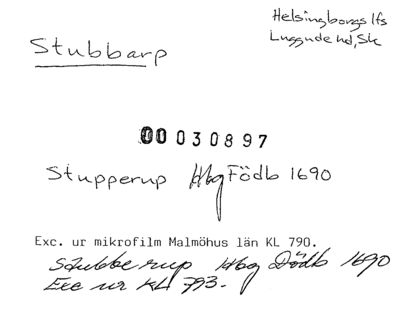 Stubbarp
Helsingborgs lfs
Luggude hd, Sk
00030897
Stupperup Hbg Födb 1690
Exc. ur mikrofilm Malmöhus län KL 790.
Stubberup Hbg Dödb 1690
Exc ur KL 793.